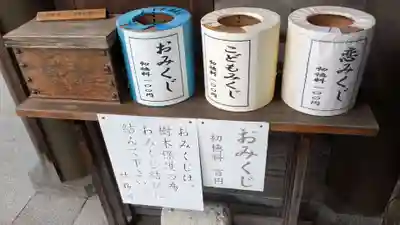 おみくじ
初穂料 一〇〇円
こどもみくじ
初穂料 一〇〇円
恋みくじ
初穂料 一〇〇円
おみくじは、
樹木保護の為
おみくじ結びに
結んで下さい。
おみくじ
初穂料 百円